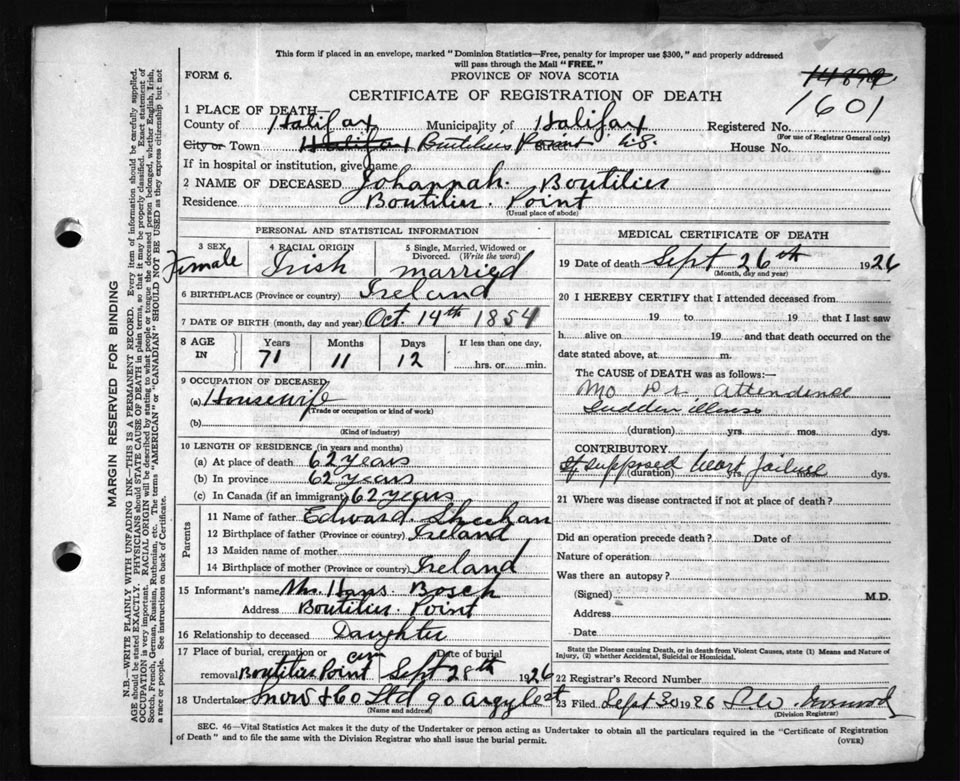 This form if placed in an envelope, marked "Dominion Statistics—Free, penalty for improper use $300," and properly addressed
will pass through the Mail "FREE."
FORM 6.
PROVINCE OF NOVA SCOTIA
14899
CERTIFICATE OF REGISTRATION OF DEATH
1601
1 PLACE OF DEATH—
County of Halifax Municipality of Halifax Registered No.
(For use of Registrar General only)
City or Town Halifax Boutiliers Point N.S. House No.
If in hospital or institution, give name
2 NAME OF DECEASED Johannah. Boutilier
Residence Boutiliers. Point
(Usual place of abode)
PERSONAL AND STATISTICAL INFORMATION
3 SEX 4 RACIAL ORIGIN 5 Single, Married, Widowed or
Divorced. (Write the word)
Female Irish married
6 BIRTHPLACE (Province or country) Ireland
7 DATE OF BIRTH (month, day and year) Oct. 14th 1854
8 AGE IN Years Months Days If less than one day,
71 11 12 hrs. or min.
9 OCCUPATION OF DECEASED
(a) Housewife
(Trade or occupation or kind of work)
(b)
(Kind of industry)
10 LENGTH OF RESIDENCE (in years and months)
(a) At place of death 62 years
(b) In province 62 years
(c) In Canada (if an immigrant) 62 years
Parents
11 Name of father Edward. Sheehan
12 Birthplace of father (Province or country) Ireland
13 Maiden name of mother
14 Birthplace of mother (Province or country) Ireland
15 Informant's name Mrs. Hans. Bosch
Address Boutiliers. Point
16 Relationship to deceased Daughter
17 Place of burial, cremation or Date of burial
removal Boutiliers Point cem Sept 28th 1926
18 Undertaker Snow & Co Ltd 90 Argyle st
(Name and address)
MEDICAL CERTIFICATE OF DEATH
19 Date of death Sept 26th 1926
(Month, day and year)
20 I HEREBY CERTIFY that I attended deceased from
19 to 19 that I last saw
h alive on 19 and that death occurred on the
date stated above, at m.
The CAUSE OF DEATH was as follows:—
No Dr. attendence
Sudden illness
(duration) yrs. mos. dys.
CONTRIBUTORY
of supposed heart failure
(duration) yrs. mos. dys.
21 Where was disease contracted if not at place of death?
Did an operation precede death? Date of
Nature of operation
Was there an autopsy?
(Signed) M.D.
Address
Date
State the Disease causing Death, or in death from Violent Causes, state (1) Means and Nature of
Injury, (2) whether Accidental, Suicidal or Homicidal.
22 Registrar's Record Number
23 Filed Sept 30 1926
(Division Registrar)
SEC. 46—Vital Statistics Act makes it the duty of the Undertaker or person acting as Undertaker to obtain all the particulars required in the "Certificate of Registration
of Death" and to file the same with the Division Registrar who shall issue the burial permit.
(OVER)
MARGIN RESERVED FOR BINDING
N.B.—WRITE PLAINLY WITH UNFADING INK—THIS IS A PERMANENT RECORD. Every item of information should be carefully supplied.
AGE should be stated EXACTLY. PHYSICIANS should STATE CAUSE OF DEATH in plain terms, so that it may be properly classified. Exact statement of
OCCUPATION is very important. RACIAL ORIGIN will be described by stating to what people or tongue the deceased person belonged, whether English, Irish,
Scotch, French, German, Russian, Ruthenian, etc. The terms "AMERICAN" or "CANADIAN" SHOULD NOT BE USED as they express citizenship but not
a race or people. See instructions on back of Certificate.